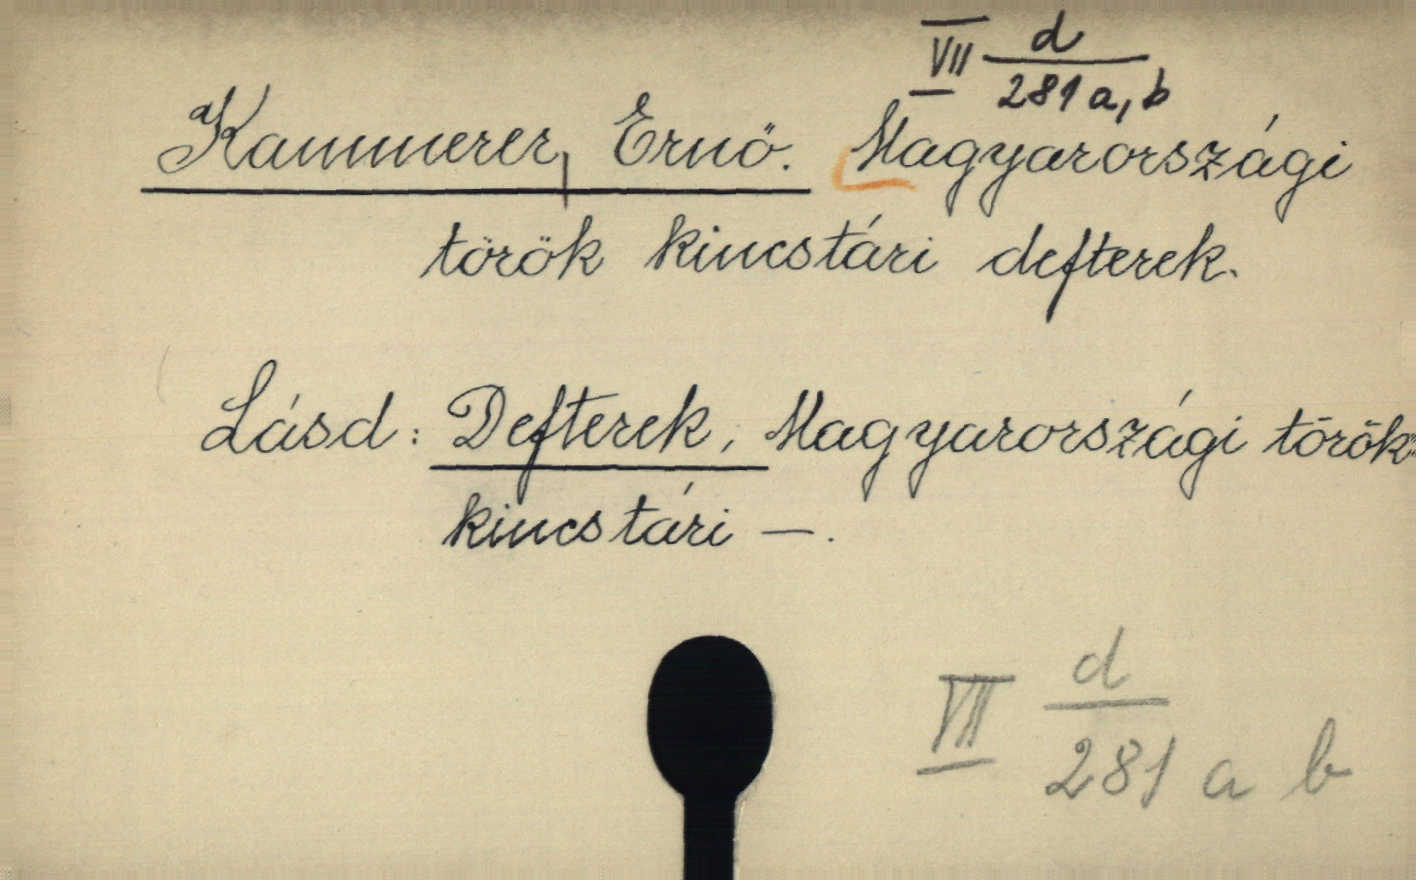 VII d
281 a, b
Kammerer, Ernő. Magyarországi
török kincstári defterek.
Lásd: Defterek, Magyarországi török
kincstári —.
VII d
281 a b